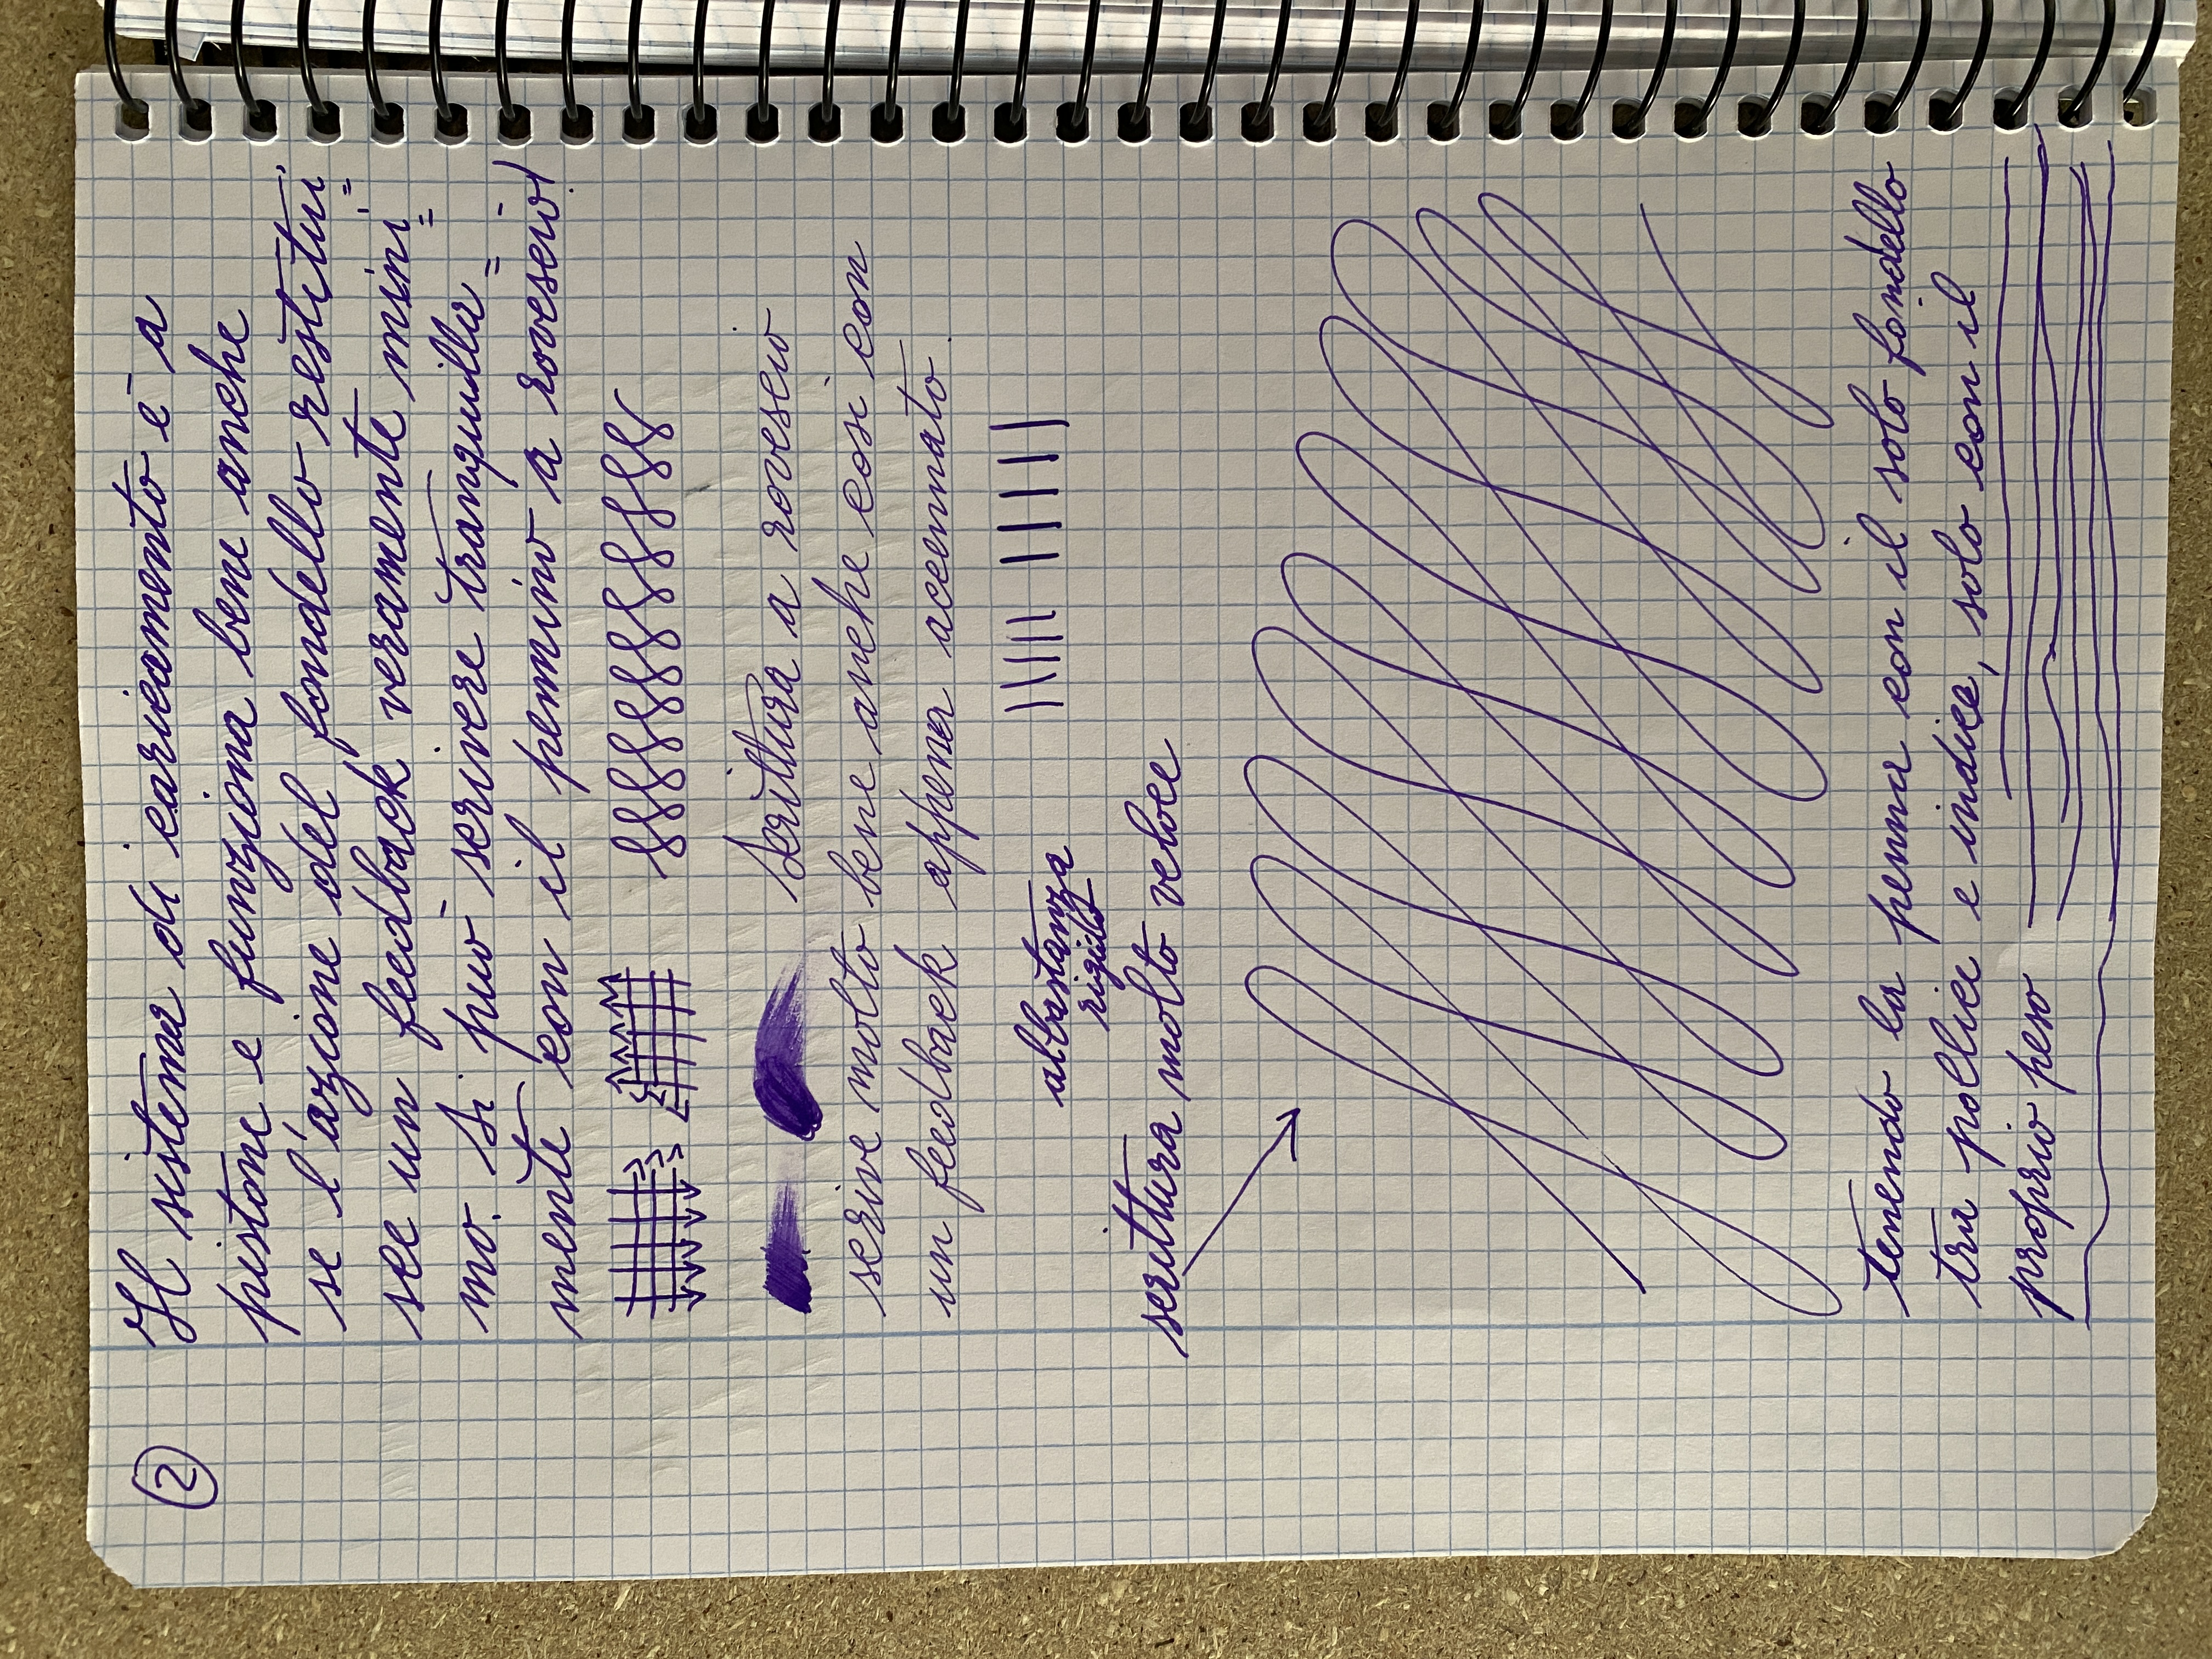 2
Il sistema di caricamento è a
pistone e funziona bene anche
se l'azione del fondello restitui=
sce un feedback veramente mini=
mo. Si può scrivere tranquilla=
mente con il pennino a rovescio!
Scrittura a rovescio
scrive molto bene anche così con
un feedback appena accennato.
abbastanza
rigido
scrittura molto veloce
tenendo la penna con il solo fondello
tra pollice e indice, solo con il
proprio peso